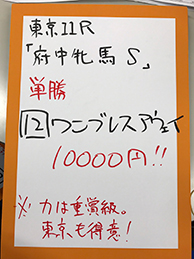 東京11R
「府中牝馬S」
単勝
12 ワンブレスアウェイ
10000円!!
※力は重賞級。
東京も得意!